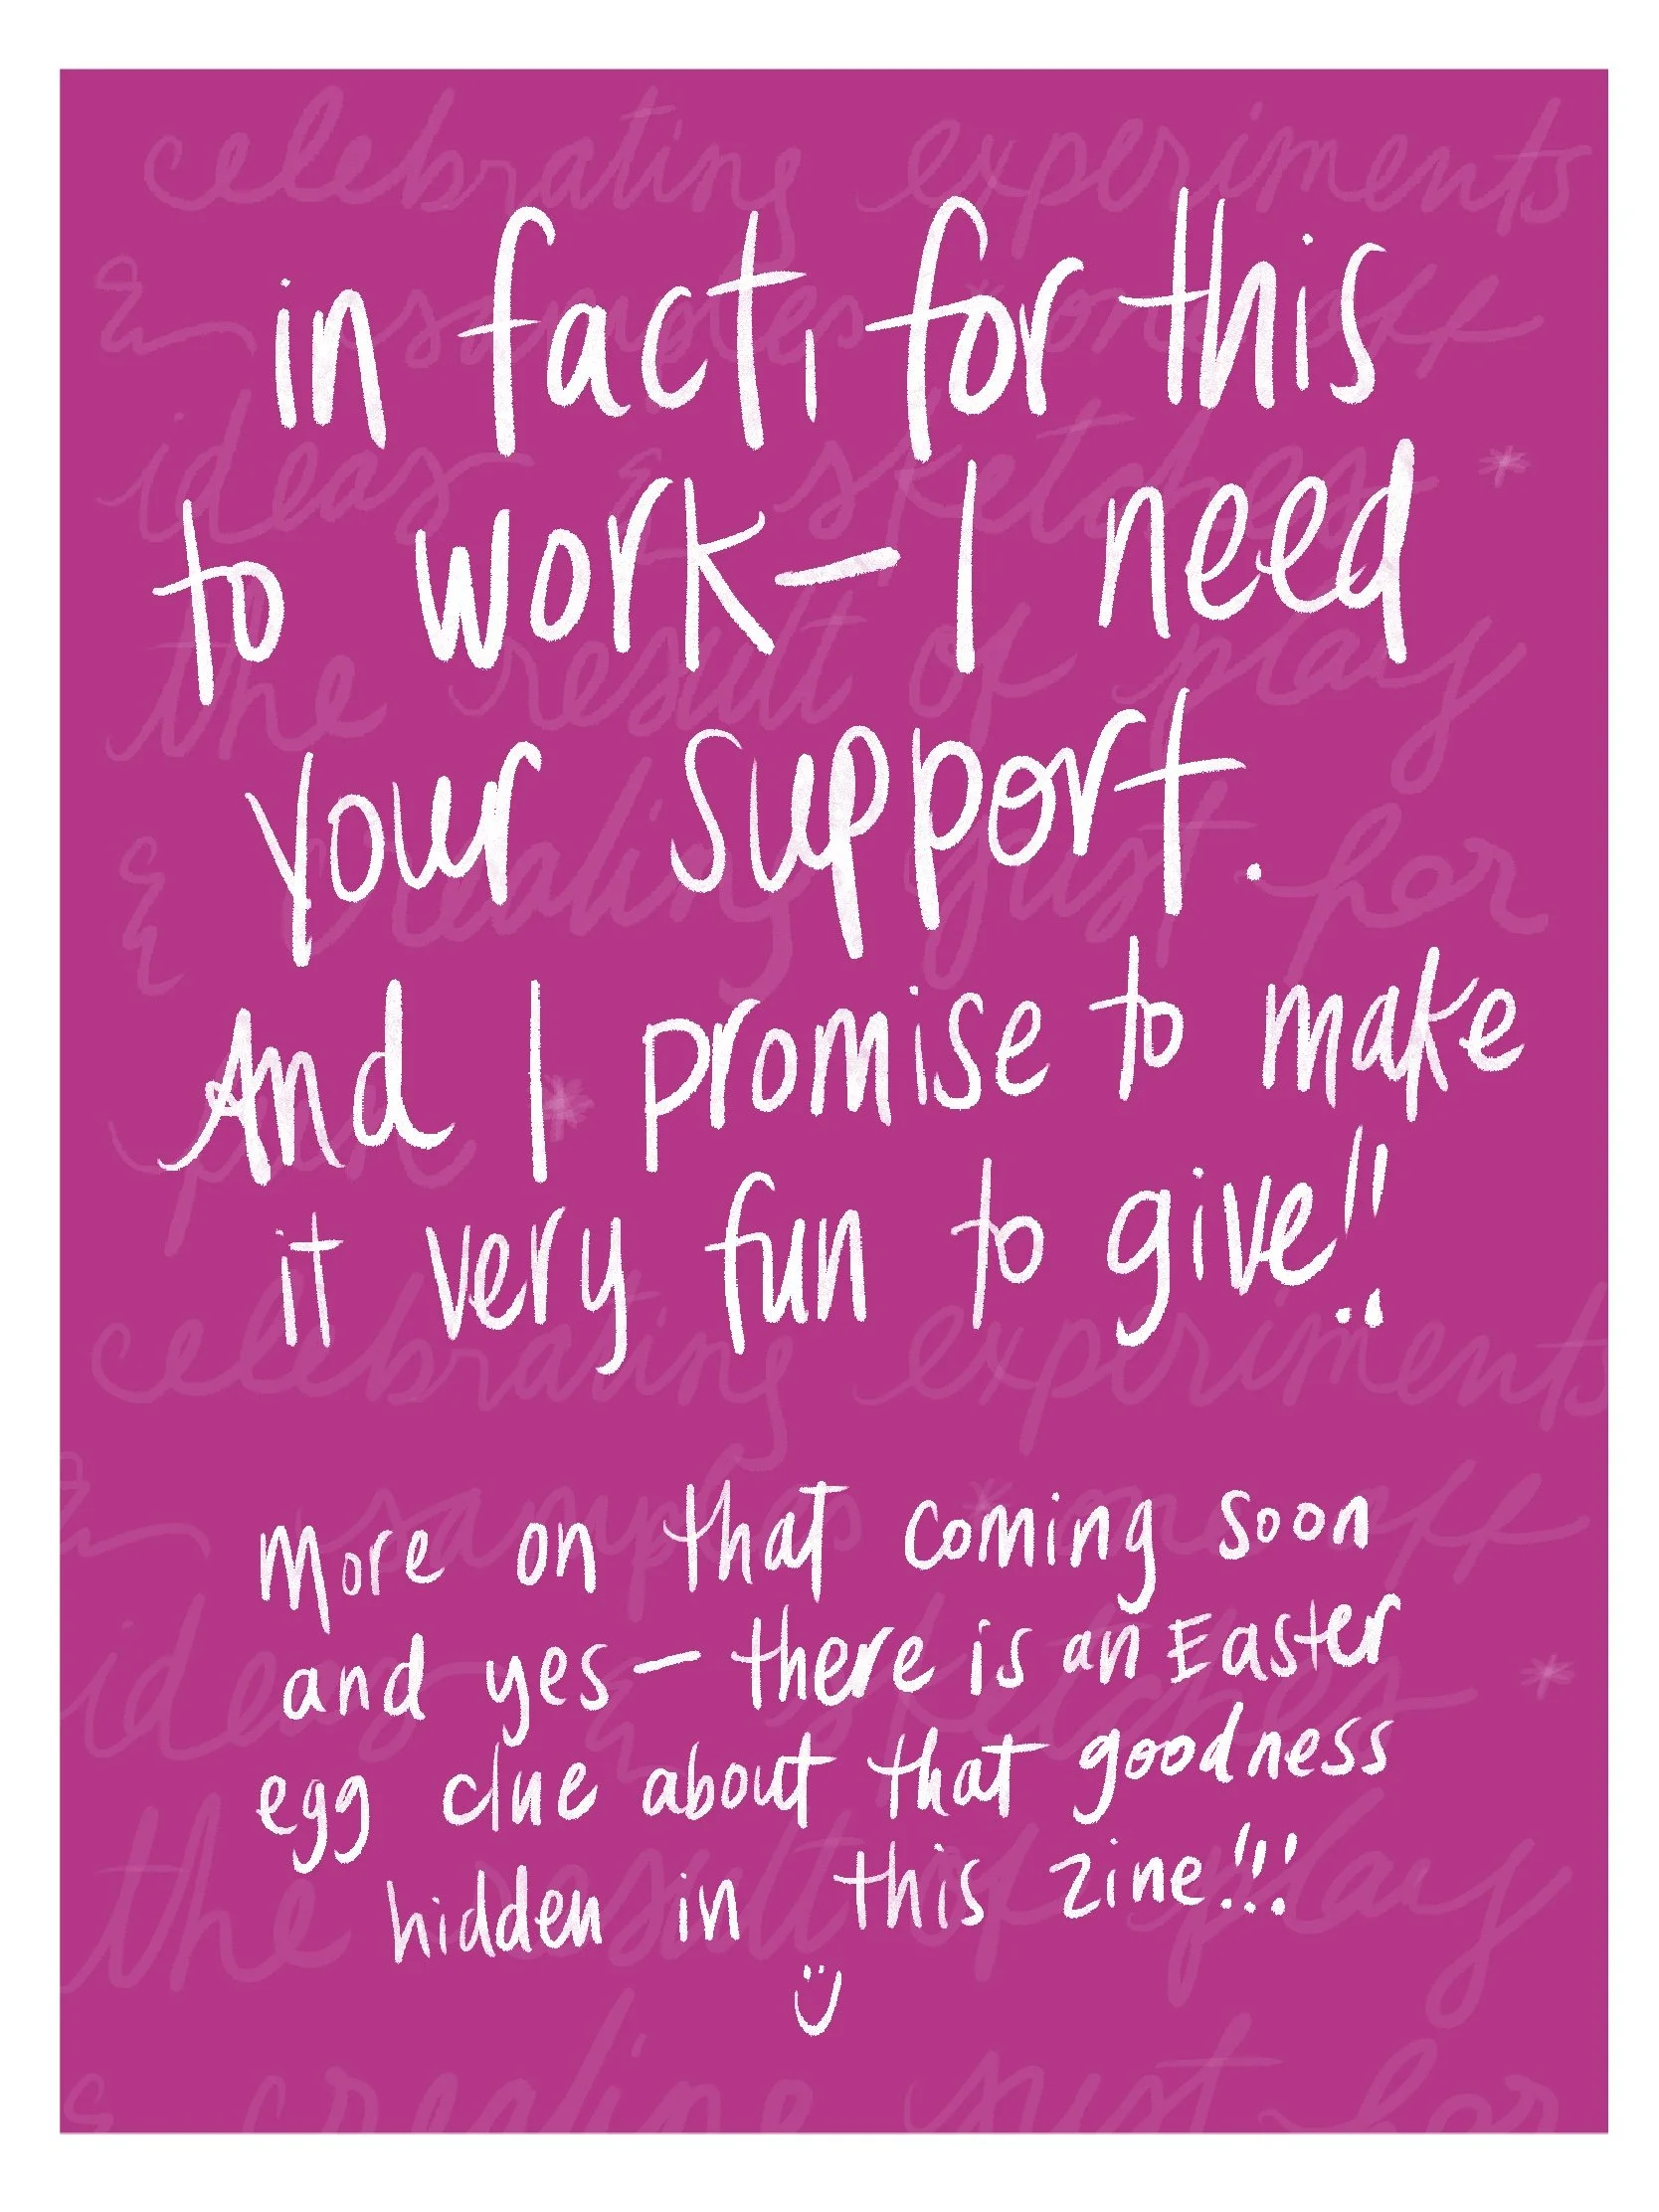 in fact, for this
to work— I need
your support.
And I promise to make
it very fun to give!!
More on that coming soon
and yes— there is an Easter
egg clue about that goodness
hidden in this zine!!!
celebrating experiments
& samples * one off
ideas & sketches *
the result of play
& creating just for
fun *
celebrating experiments
& samples * one off
ideas & sketches *
the result of play
& creating just for